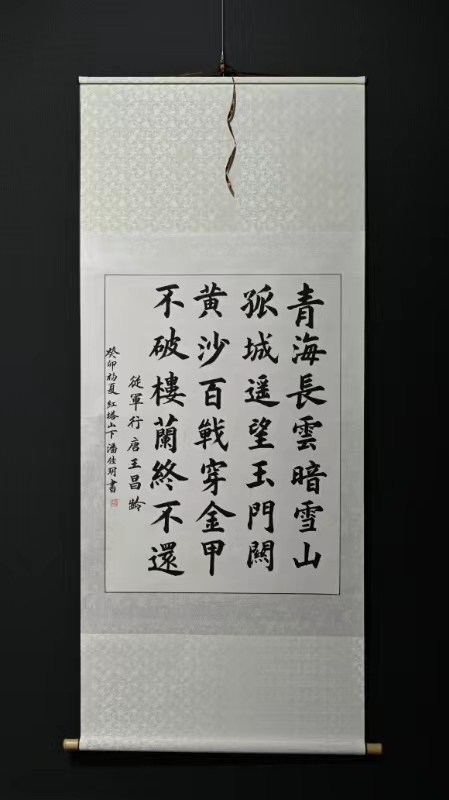 青海長雲暗雪山
孤城遥望玉門關
黄沙百戰穿金甲
不破樓蘭終不還
從軍行 唐王昌齡
癸卯初夏 紅塔山下 潘佳玥書